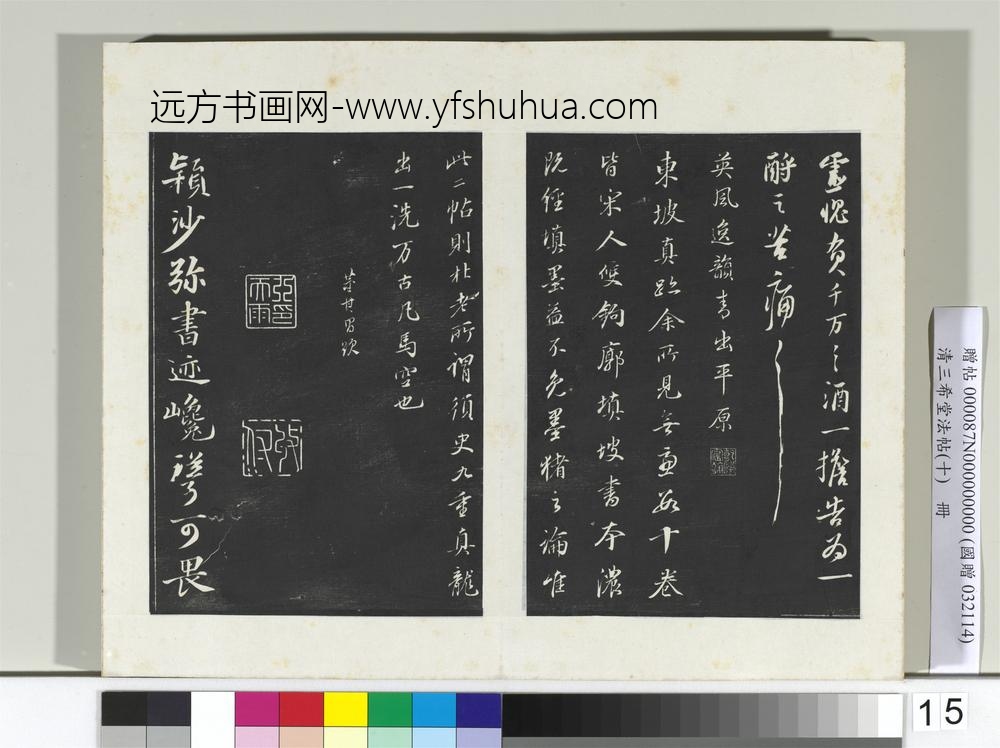 远方书画网-www.yfshuhua.com
靈愧負千万々酒一擔告为一
酹之苦痛
英風逸韻青出平原
東坡真跡余所見無慮數十卷
皆宋人雙鉤廓填坡書本濃
既經填墨益不免墨豬之論唯
此二帖則杜老所謂須臾九重真龍
出一洗万古凡馬空也
穎沙弥書迹巉聳可畏
贈帖 000087N000000000 (國贈 032114)
清三希堂法帖(十) 冊
15